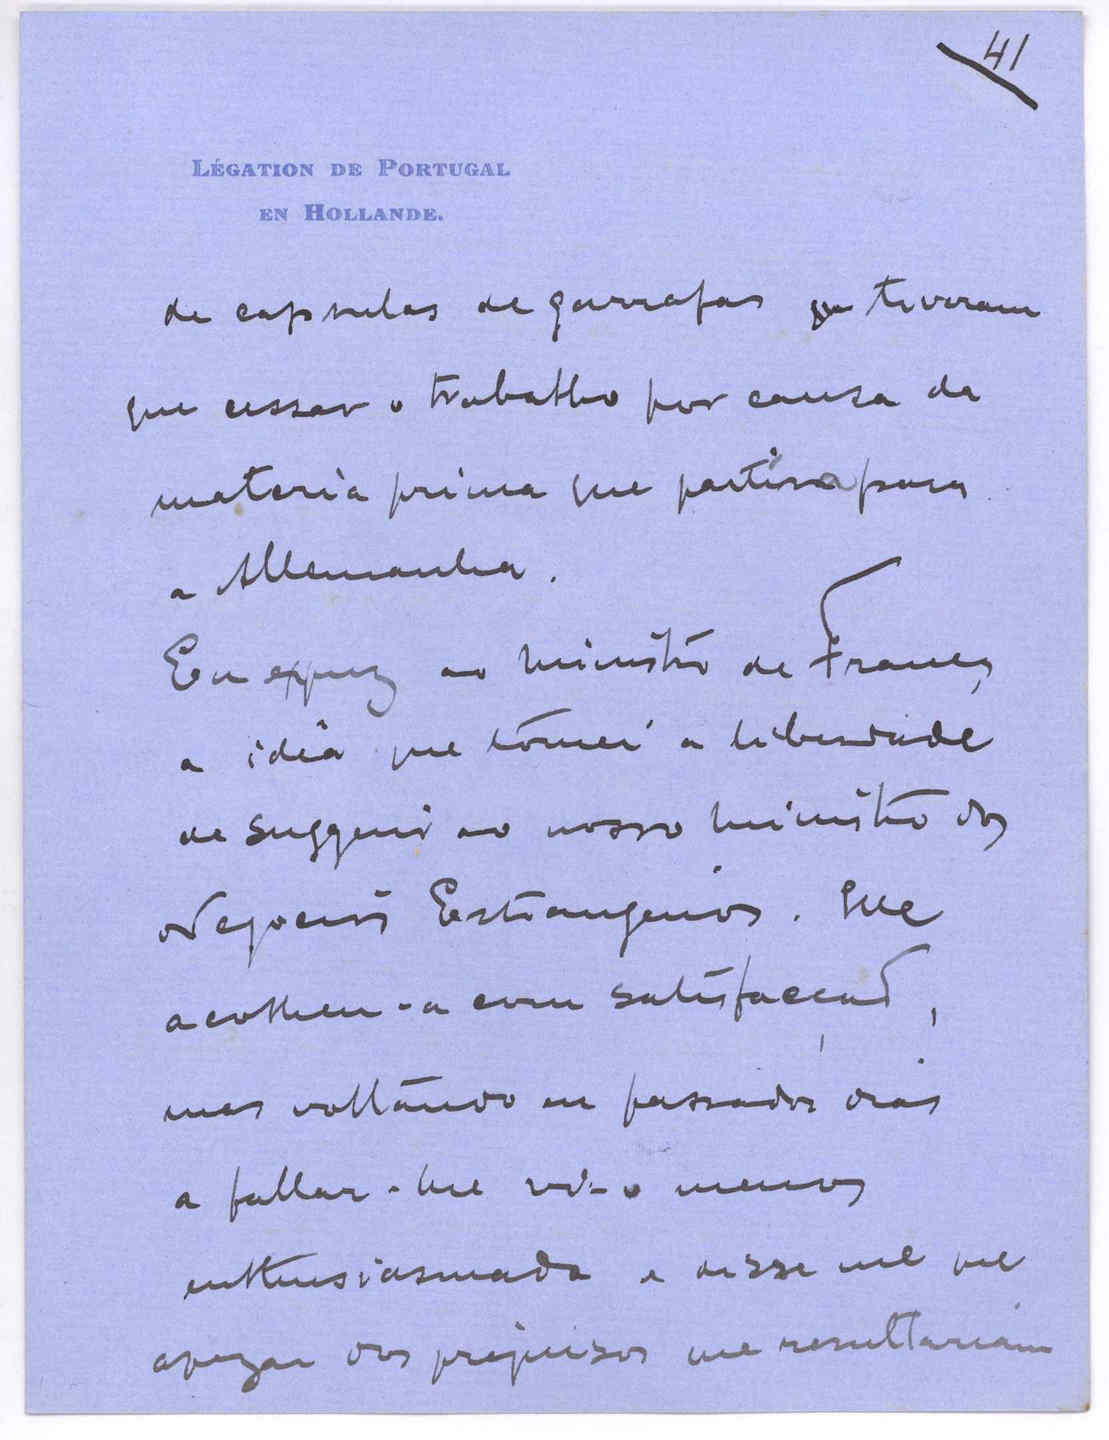 41
LÉGATION DE PORTUGAL
EN HOLLANDE.
de capsulas de garrafas que tiveram
que cessar o trabalho por causa da
materia prima que partira para
a Allemanha.
Eu expuz ao ministro de França
a ideia que tomei a liberdade
de suggerir ao nosso ministro dos
Negocios Estrangeiros. Elle
acolheu-a com satisfacção,
mas voltando eu passados dias
a fallar-lhe vi-o menos
enthusiasmado e disse me que
apezar dos prejuisos que resultariam